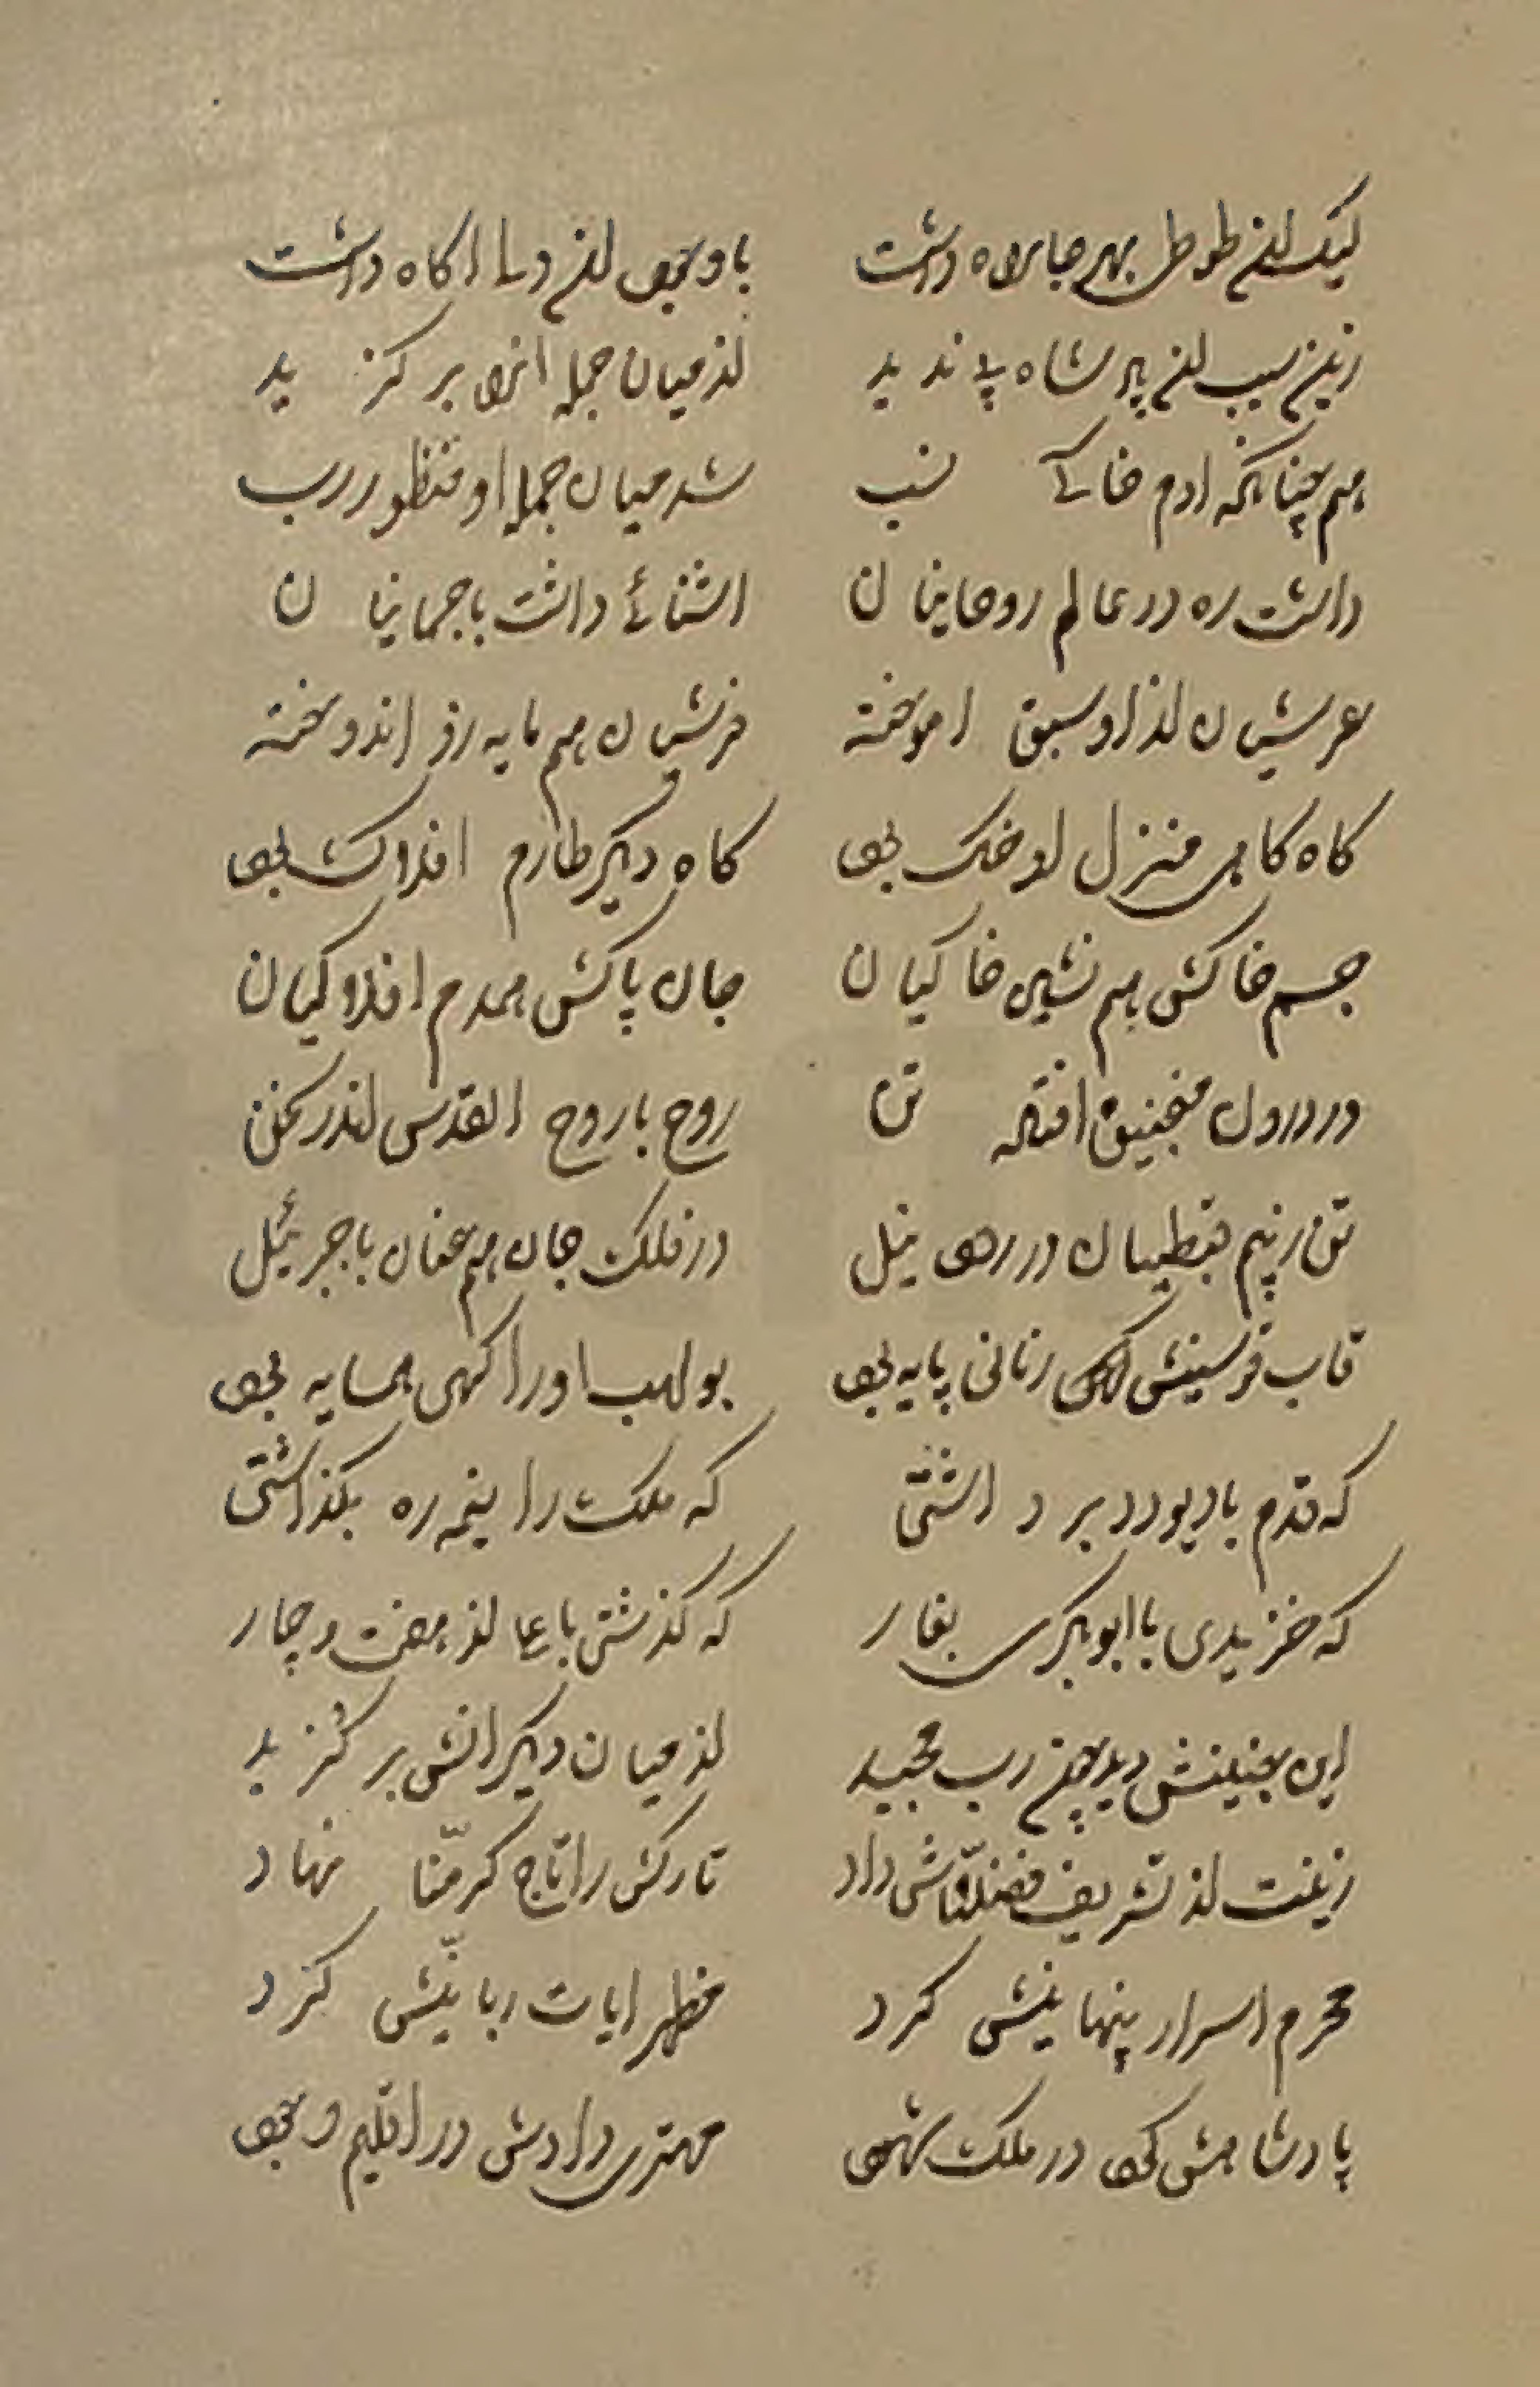 لیک ان طوطی بهر جا راه داشت با وجود ان دل اکاه داشت
زین سبب ان پیر شاه پسندید از میان جمله انرا بر کزید
هم چنانکه ادم خاکی نسب شد میان جمله او منظور رب
داشت ره در عالم روحانیان اشنائے داشت با جسمانیان
عرشیان از او سبق اموخته فرشیان هم مایه زو اندوخته
کاه کاهی منزل او خاک بود کاه دیکر طارم افلاک بود
جسم خاکش هم نشین خاکیان جان پاکش همدم افلاکیان
در درون منجنیق افتاده تن روح با روح القدس اندر سخن
تن ز بیم قبطیان در رود نیل در فلک جان هم عنان با جبرئیل
قاب قوسینش زمانی پایه بود بو لهب اورا کهی همسایه بود
که قدم با دیو و دد برداشتی که ملک را نیمه ره بکذاشتی
که خزیدی با ابوبکری بغار که کذشتی با علی از هفت و چار
این چنینش دید چون رب مجید از میان دیکرانش بر کزید
زینت از تشریف فضلناش داد تارکش را تاج کرّمنا نهاد
محرم اسرار پنهانیش کرد مظهر ایات ربانیّش کرد
پادشاهش کرد در ملک شهود مهتری دادش در اقلیم وجود